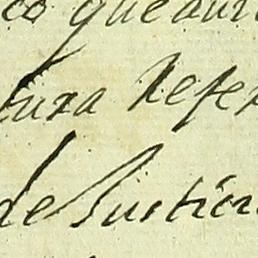 co que aun
tura Refer
de Justici